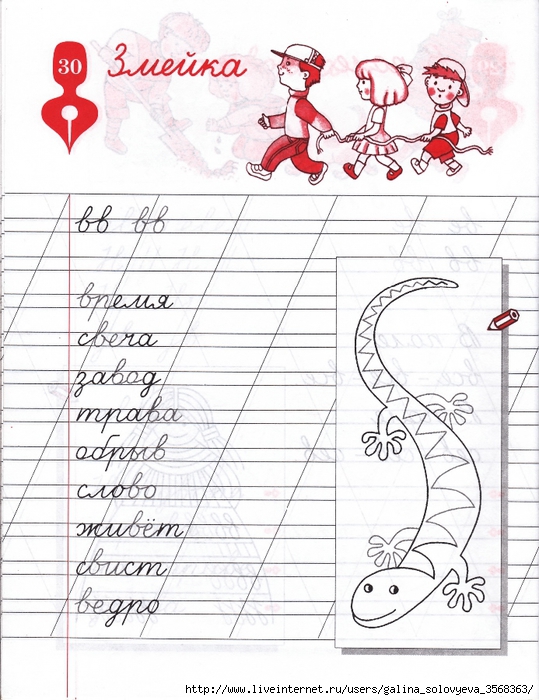 30
Змейка
вв вв
время
свеча
завод
трава
обрыв
слово
живёт
свист
ведро
http://www.liveinternet.ru/users/galina_solovyeva_3568363/